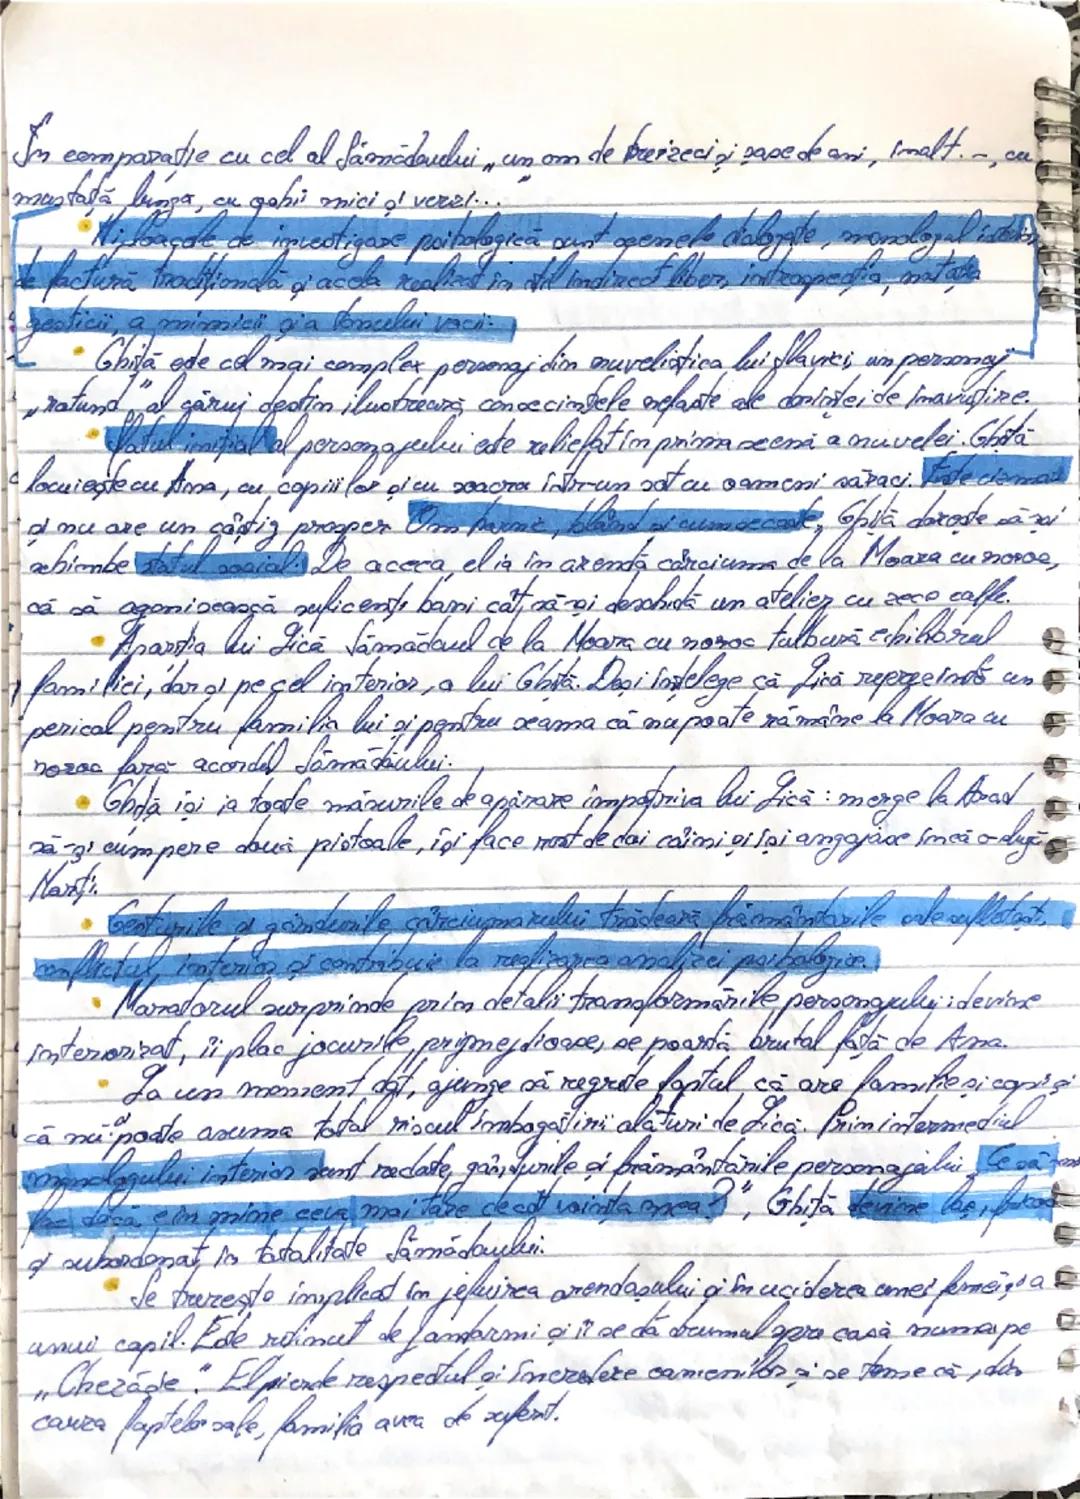 În comparație cu cel al Sămădăului „un om de treizeci și șase de ani, înalt. -, cu
mustață lungă, cu ochii mici și verzi...
Mijloacele de investigare psihologică sunt scenele dialogate, monologul interior
de factură tradițională și acela realizat în stil indirect liber, introspecția, notația
gesticii, a mimicii și a tonului vocii.
Ghiță este cel mai complex personaj din nuvelistica lui Slavici, un personaj
„rotund" al cărui destin ilustrează consecințele nefaste ale dorinței de înavuțire.
Statul inițial al personajului este reliefat în prima scenă a nuvelei. Ghiță
locuiește cu Ana, cu copiii lor și cu soacra într-un sat cu oameni săraci. Este cizmar
și nu are un câștig prosper. Om harnic, blând și cumsecade, Ghiță dorește să-și
schimbe statul social. De aceea, el ia în arendă cârciuma de la Moara cu noroc,
ca să agonisească suficenți bani cât să-și deschidă un atelier cu zece calfe.
Apariția lui Lică Sămădăul de la Moara cu noroc tulbură echilibrul
familiei, dar și pe cel interior, a lui Ghiță. Deși înțelege că Lică reprezintă un
pericol pentru familia lui și pentru seama că nu poate rămâne la Moara cu
noroc fără acordul Sămădăului.
Ghiță își ia toate măsurile de apărare împotriva lui Lică: merge la Arad
să-și cumpere două pistoale, își face rost de doi câini și își angajase încă o slugă
Marți.
Gesturile și gândurile cârciumarului trădează frământările sale sufletești,
conflictul interior și contribuie la realizarea analizei psihologice.
Naratorul surprinde prin detalii transformările personajului: devine
interiorizat, îi plac jocurile primejdioase, se poartă brutal față de Ana.
La un moment dat, ajunge să regrete faptul că are familie și copii și
că nu poate asuma total riscul îmbogățirii alături de Lică. Prin intermediul
monologului interior sunt redate gândurile și frământările personajului „Ce să
fac dacă e în mine ceva mai tare decât voința mea?", Ghiță devine laș, fricos
și subordonat în totalitate Sămădăului.
Se trezește implicat în jefuirea arendașului și în uciderea unei femei și a
unui copil. Este reținut de jandarmi și îi se dă drumul spre casă numai pe
„Chezășie". El pierde respectul și încredere oamenilor și se teme că, din
cauza faptelor sale, familia avea de suferit.